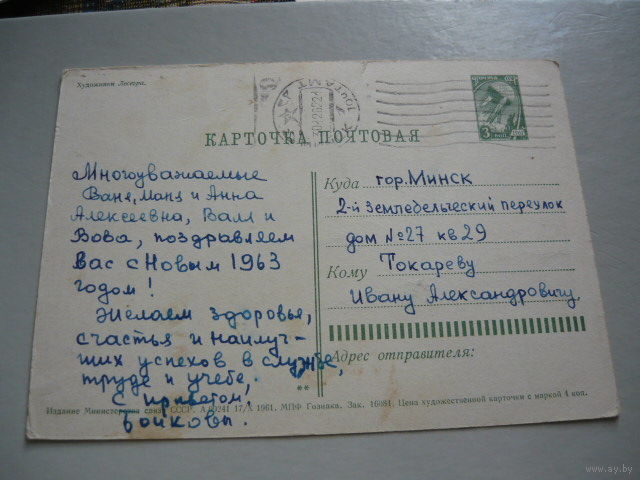 Художники Лесегри.
ПОЧТА СССР
3 КОП. 1961
КАРТОЧКА ПОЧТОВАЯ
Многоуважаемые
Ваня, Маня и Анна
Алексеевна, Валя и
Вова, поздравляем
Вас с Новым 1963
годом!
Желаем здоровья,
счастья и наилуч-
ших успехов в службе,
труде и учебе,
С приветом,
Бойковы.
Куда гор. Минск
2-й Земледельческий переулок
дом №27 кв 29
Кому Токареву
Ивану Александровичу
Адрес отправителя:
**
Издание Министерства связи СССР. А 09241 17/X 1961. МПФ Гознака. Зак. 16081. Цена художественной карточки с маркой 4 коп.
www.ay.by